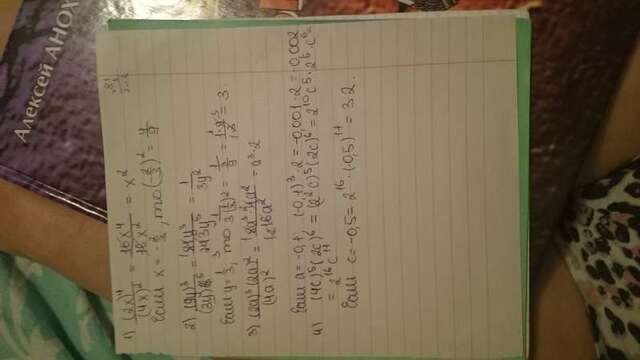 Алексей АНОХ
1) (2x)⁴/(4x)² = 16x⁴/16x² = x²
Если x = -2/3, то (-2/3)² = 4/9
2) (9y)³/(3y)⁵ = y³/243y⁵ = 1/3y²
Если y = 1/3, то 1/3(1/3)² = 1/(3/9) = 1·9/1·3 = 3
3) (2a)³(2a)²/(4a)² = 8a³·4a²/16a² = a³·2
Если a = -0,1, (-0,1)³·2 = -0,001·2 = -0,002
4) (4c)⁵(2c)⁶ = (2²c)⁵(2c)⁶ = 2¹⁰c⁵·2⁶·c⁶ =
= 2¹⁶c¹¹
Если c = -0,5 = 2¹⁶·(-0,5)¹¹ = 32.